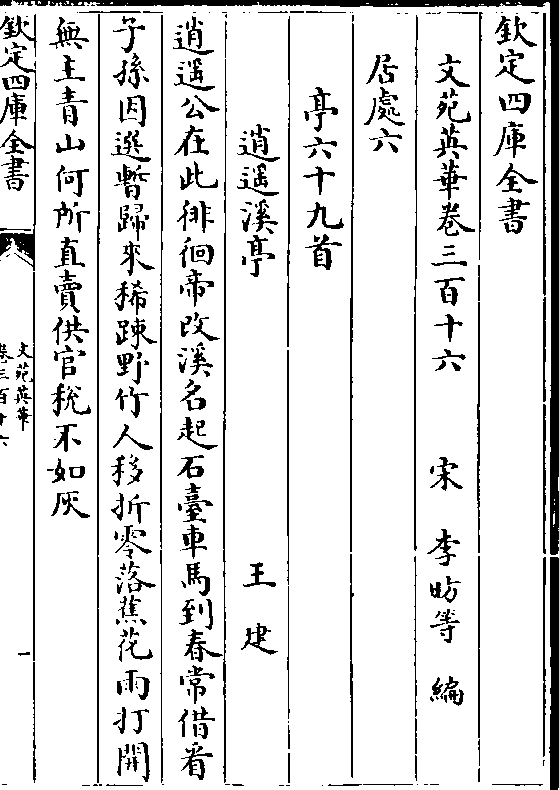 欽定四庫全書
文苑英華卷三百十六 宋 李昉等 編
居處六
亭六十九首
逍遥溪亭 王建
逍遥公在此徘徊帝改溪名起石臺車馬到春常借看
子孫因選暫歸來稀踈野竹人移折零落蕉花雨打開
無主青山何所直賣供官稅不如灰
欽定四庫全書
文苑英華
卷三百十六
一